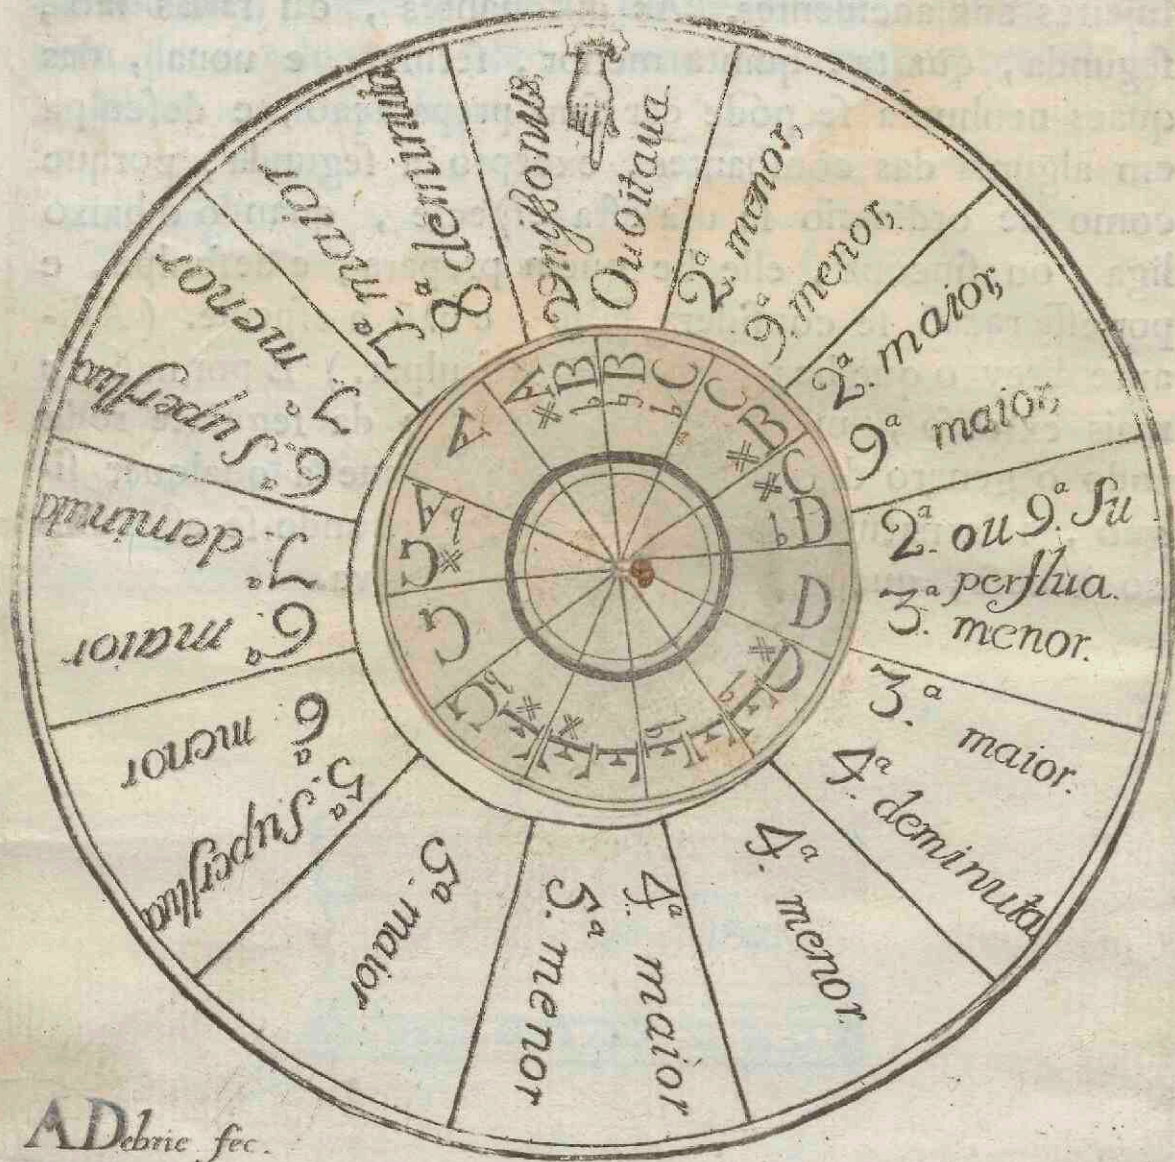 Unisonus,
Ou Oitaua
2.ª menor,
9.ª menor,
2.ª maior,
9.ª maior,
2.ª ou 9.ª Su
perflua.
3.ª menor.
3.ª maior.
4.ª deminuta
4.ª menor.
4.ª maior
5.ª menor
5.ª maior
5.ª Superflua
6.ª menor
6.ª maior
7.ª deminuta
6.ª Superflua
7.ª menor
7.ª maior
8.ª deminuta
B
B
C
C
B
C
D
D
D
A
A
A
G
ADebrie fec.